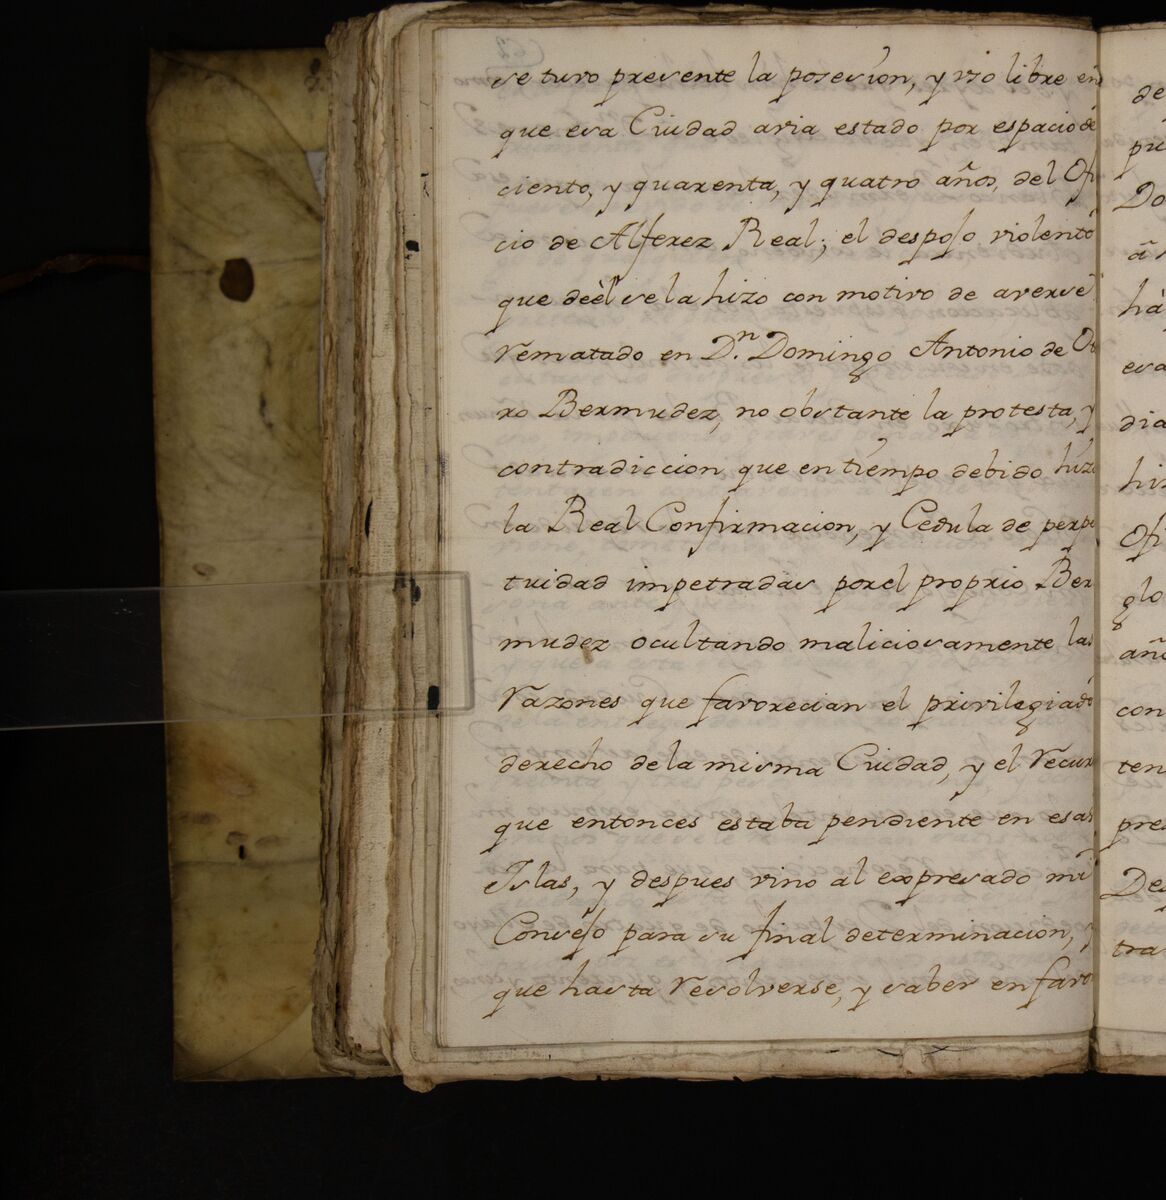 se tuvo presente la posesion, y vso libre en
que esa Ciudad avia estado por espacio de
ciento, y quarenta, y quatro años, del Ofi
cio de Alferez Real; el despojo violento
que deèl se la hizo con motivo de averse
rematado en D.n Domingo Antonio de Ot
ro Bermudez, no obstante la protesta, y
contradiccion que en tiempo debido hizo
la Real Confirmacion, y Cedula de perpe
tuidad impetradas por el proprio Ber
mudez ocultando maliciosamente las
razones que favorecian el privilegiado
derecho de la misma Ciudad, y el recur
que entonces estaba pendiente en esas
Islas, y despues vino al expresado mi
Consejo para su final determinacion, y
que hasta resolverse, y saber en favo
de
pu
Do
há
esa
dia
hiz
Ofi
glo
año
con
ten
pre
Des
tra